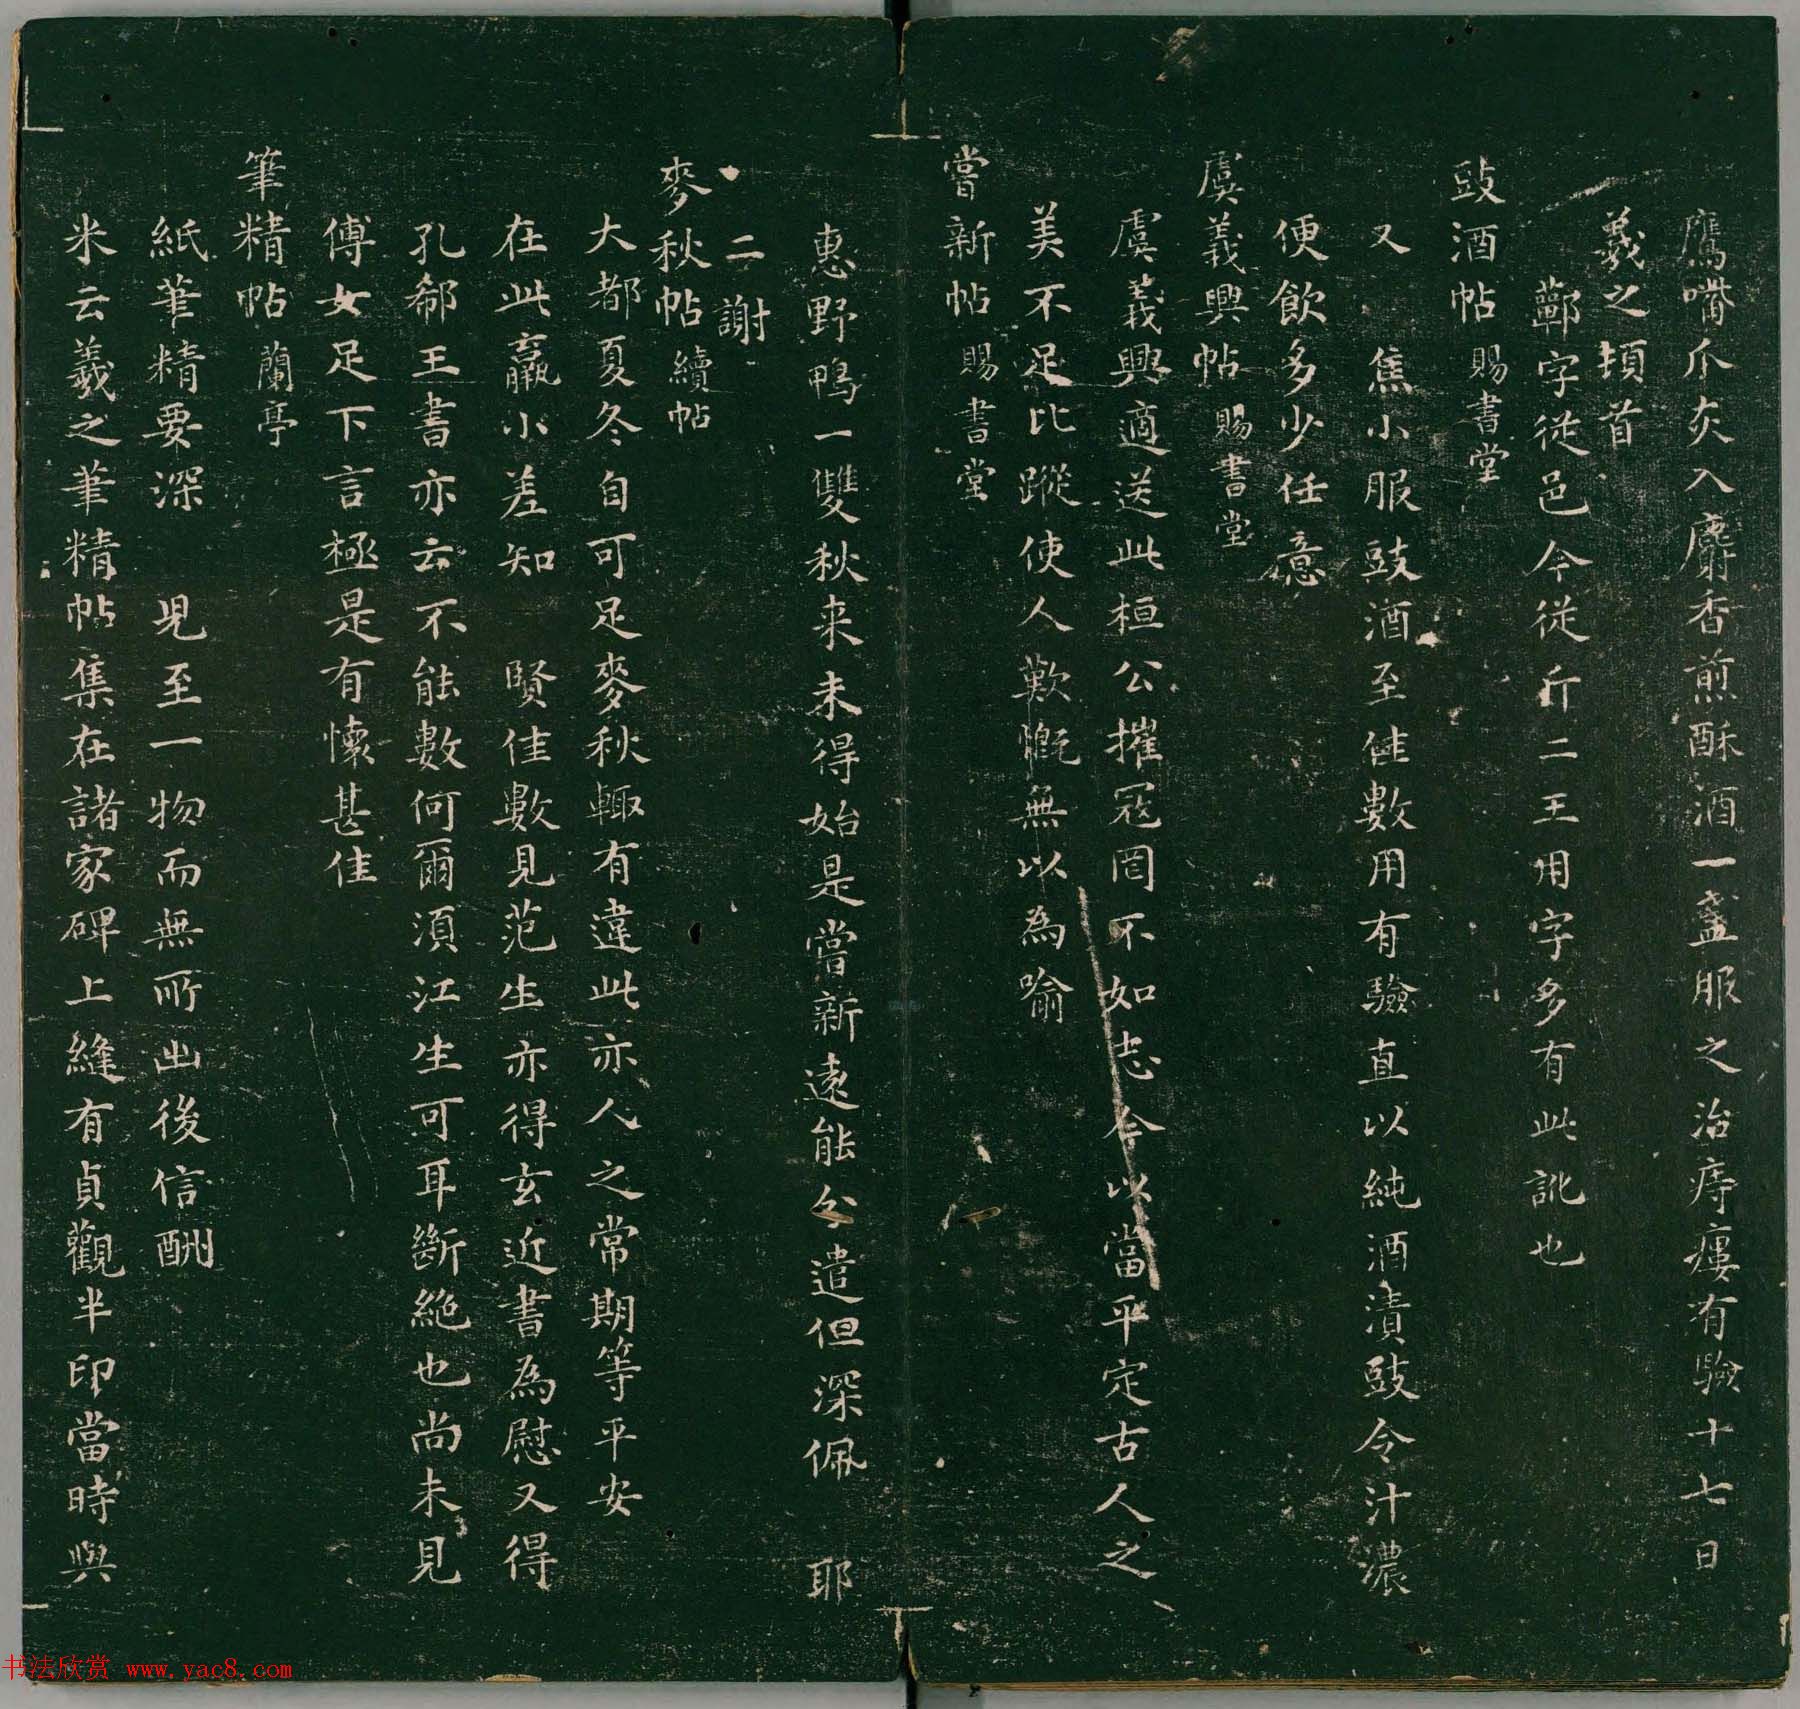 鷹嘴爪灸入麝香煎酥酒一盞服之治痔瘻有驗十七日
羲之頓首
鄿字從邑今從斤二王用字多有此訛也
豉酒帖 賜書堂
又 焦小服豉酒至佳數用有驗直以純酒漬豉令汁濃
便飲多少任意
虞義興帖 賜書堂
虞義興適送此桓公摧寇罔不如志今以當平定古人之
美不足比蹤使人歎慨無以為喻
嘗新帖 賜書堂
惠野鴨一雙秋来未得始是嘗新遠能分遣但深佩 耶
二謝
麥秋帖 續帖
大都夏冬自可足麥秋輙有違此亦人之常期等平安
在此羸小差知 賢佳數見范生亦得玄近書為慰又得
孔郗王書亦云不能數何爾須江生可耳斷絶也尚未見
傅女足下言極是有懷甚佳
筆精帖 蘭亭
紙筆精要深 見至一物而無所出後信酬
米云羲之筆精帖集在諸家碑上縫有貞觀半印當時與
书法欣赏 www.yac8.com